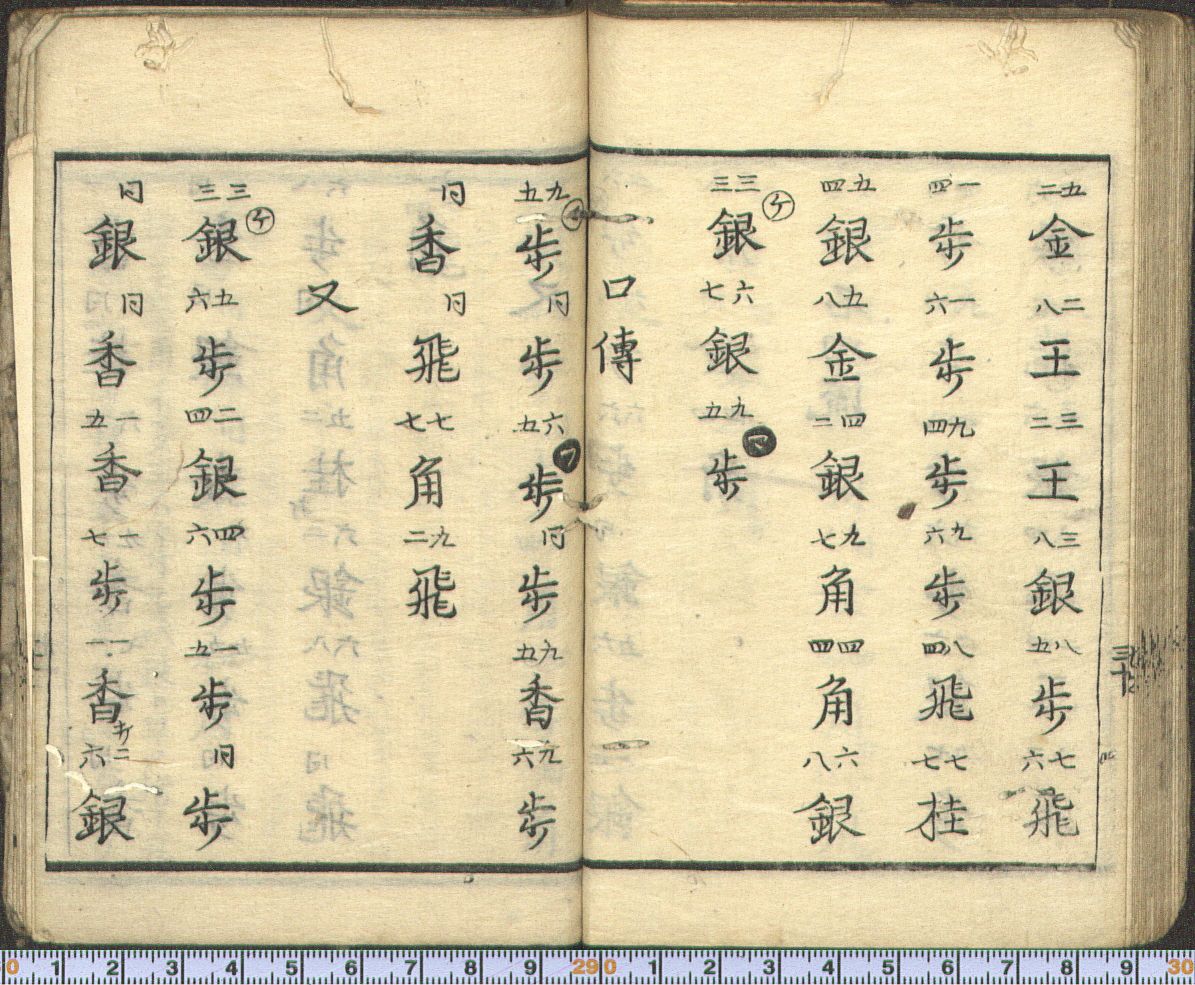 五二金二八王三二王三八銀八五歩七六飛
一四歩一六歩九四歩九六歩八四飛七七桂
五四銀五八金四二銀九七角四四角六八銀
三三ケ銀六七銀九五マ歩
口傳
九五歩同歩六五フ歩同歩九五香九六歩
同香同飛七七角九二飛
又
三三ケ銀五六歩二四銀四六歩一五歩同歩
同銀同香一五香一七歩一一香二六銀